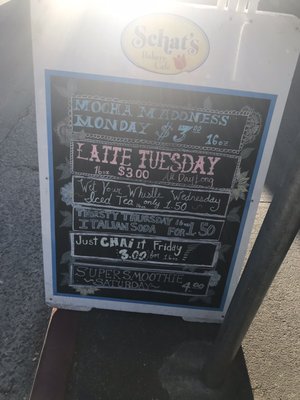 Schat's
Bakery Cafe
MOCHA MADDNESS
MONDAY $3.00 16oz
LATTE TUESDAY
16oz $3.00 All Day Long
Wet Your Whistle Wednesday
Iced Tea only 1.50
THIRSTY THURSDAY 16oz
ITALIAN SODA FOR 1.50
Just CHAi it Friday
3.00 for 16oz
SUPER SMOOTHIE
SATURDAY 4.00